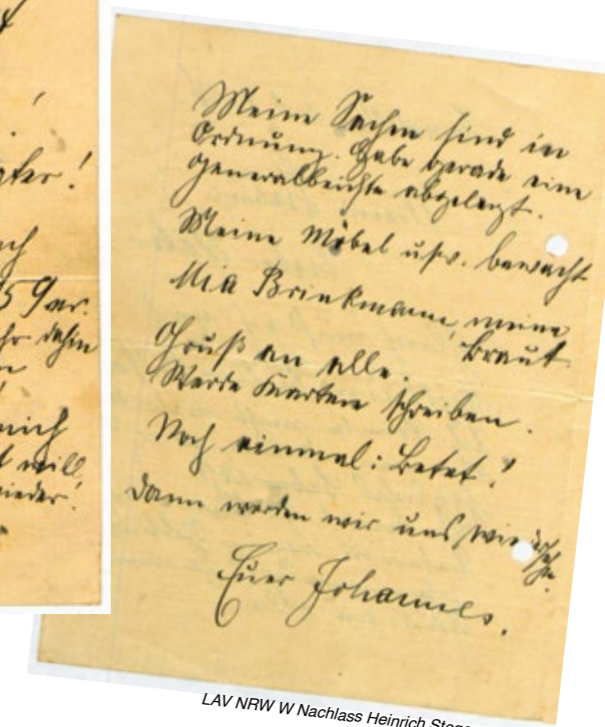 ter!
ch
59er.
hr dahin
n
mich
t will,
wieder!
Meine Sachen sind in
Ordnung. Habe gerade eine
Generalbeichte abgelegt.
Meine Möbel usw. bewacht
Mia Brinkmann, meine
Braut.
Gruß an alle.
Werde Karten schreiben.
Noch einmal: Betet!
Dann werden wir uns wiedersehn.
Euer Johannes.
LAV NRW W Nachlass Heinrich